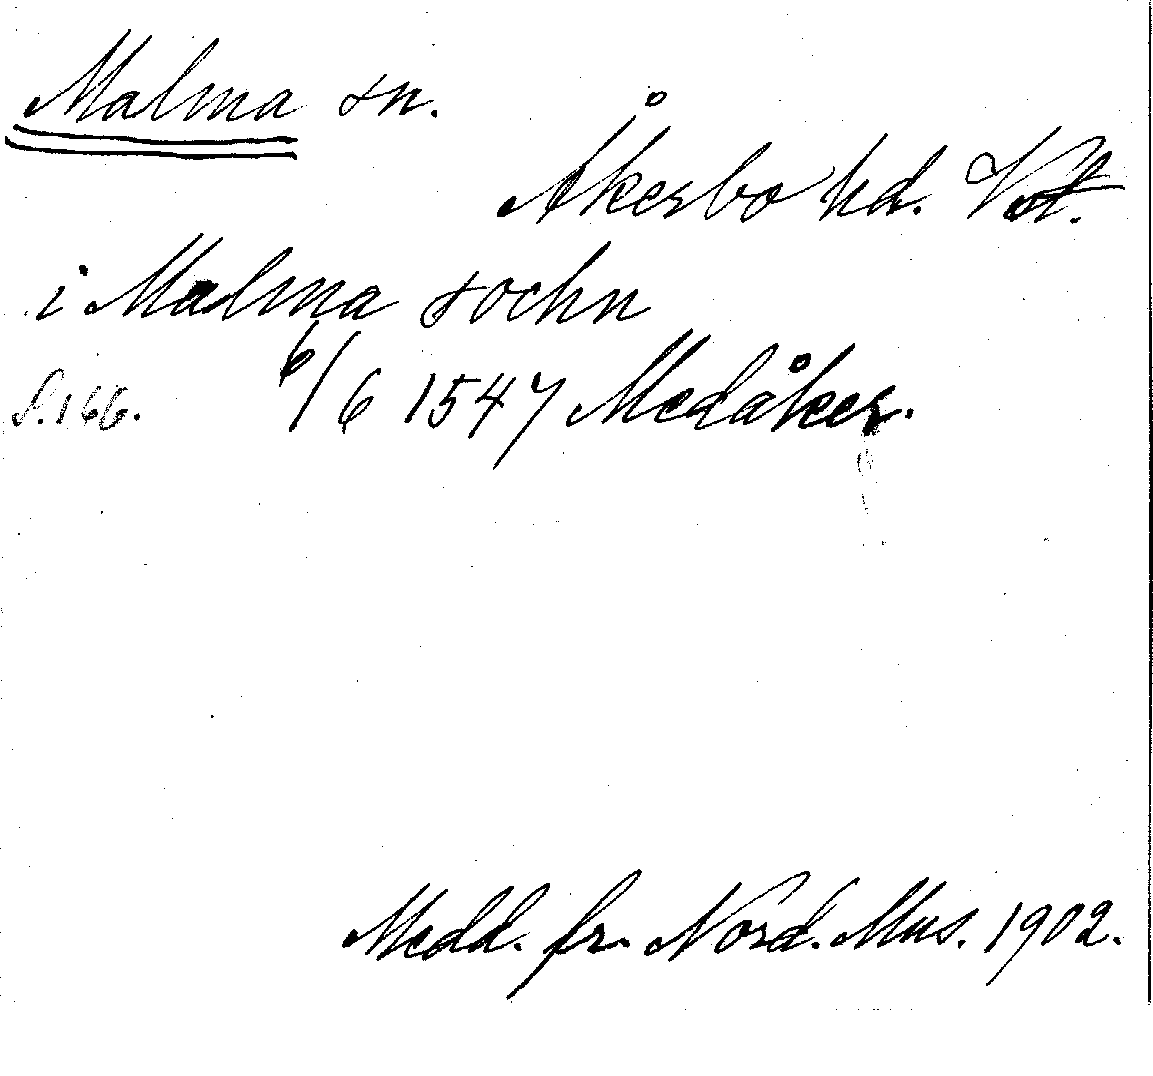 Malma sn.
Åkerbo hd. Vstm.
i Malma sochn
S. 166. 6/6 1547 Medåker.
Medd. fr. Nord. Mus. 1902.